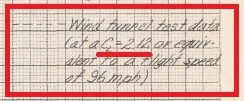 Wind tunnel test data
(at a C_L = 2.12 or equiv-
alent to a flight speed
of 96 mph)